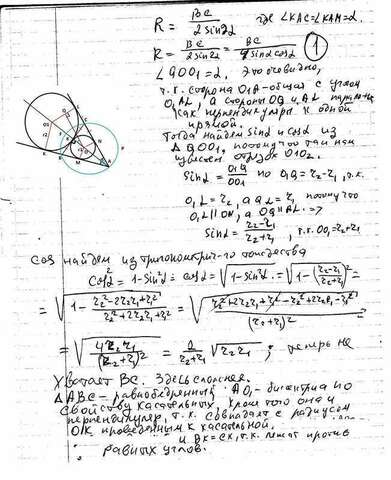 R = BC / 2sin2α где ∠KAC=∠KAM=α.
R = BC / 2sin2α = BC / 4sinαcosα
1
∠QOO₁=α. Это очевидно,
т.к. сторона O₁A - общая с углом
O₁AL, а стороны OQ и AL
как перпендикуляры к одной
прямой.
Тогда найдём sinα и cosα из
△QOO₁, потому что там нам
известен отрезок O₁O₂.
sinα = O₁Q / OO₁ но O₁Q = r₂-r₁, т.к.
O₁L=r₂, а QL=r₁ потому что
O₁L∥ON, а OQ∥AL =>
sinα = r₂-r₁ / r₂+r₁, т.к. OO₁=r₂+r₁
cos найдём из тригонометрич-го тождества
cos²α = 1-sin²α = cosα = √1-sin²α = √1-(r₂-r₁ / r₂+r₁)² =
= √1 - r₂²-2r₂r₁+r₁² / r₂²+2r₂r₁+r₁² = √r₂²+2r₂r₁+r₁²-r₂²+2r₂r₁-r₁² / (r₂+r₁)²
= √4r₂r₁ / (r₂+r₁)² = 2 / r₂+r₁ √r₂r₁ ; теперь не
хватает BC. Здесь сложнее.
△ABC - равнобедренный AO₁- биссектриса по
свойству касательных, кроме того она и
перпендикуляр, т.к. совпадает с радиусом
O₁K проведенным к касательной.
и BK=CK, т.к. лежат против
равных углов.